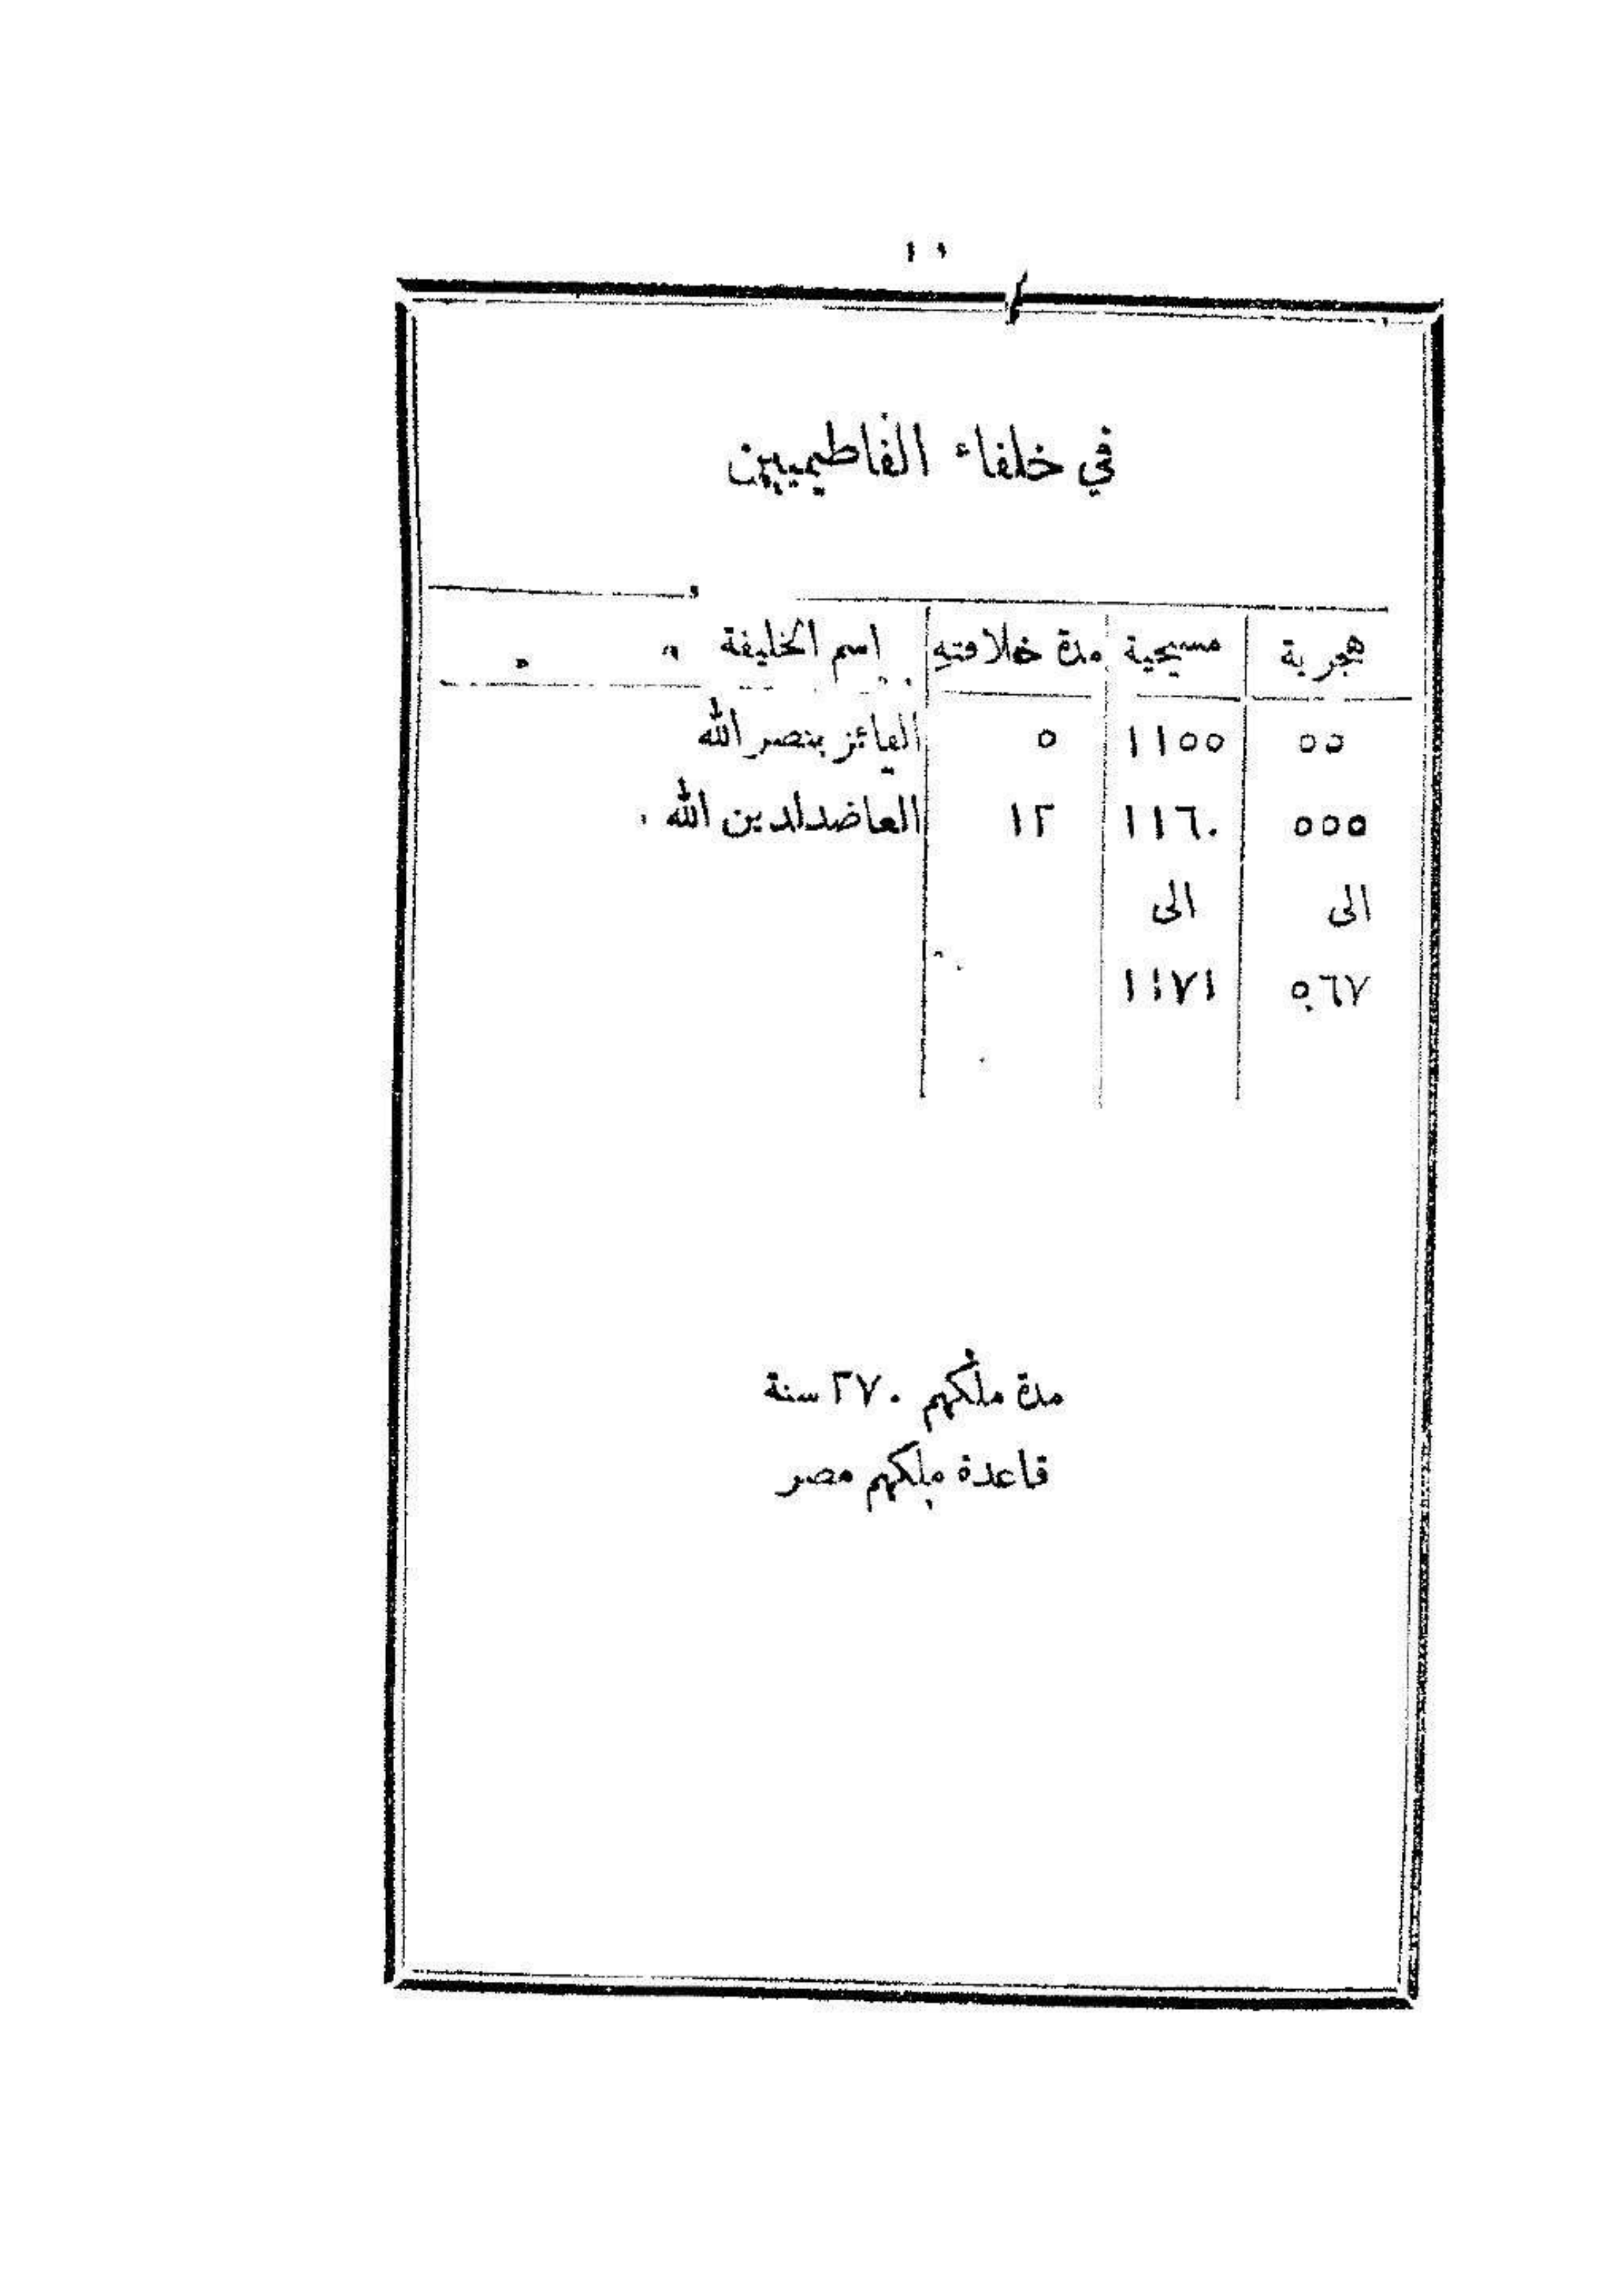 ١١
في خلفاء الفاطيميين
هجرية مسيحية مدة خلافتهِ اسم الخليفة
٥٥ ١١٥٥ ٥ الفائز بنصر الله
٥٥٥ ١١٦٠ ١٢ العاضد لدين الله
الى الى
٥٦٧ ١١٧١
مدة ملكهم ٢٧٠ سنة
قاعدة ملكهم مصر